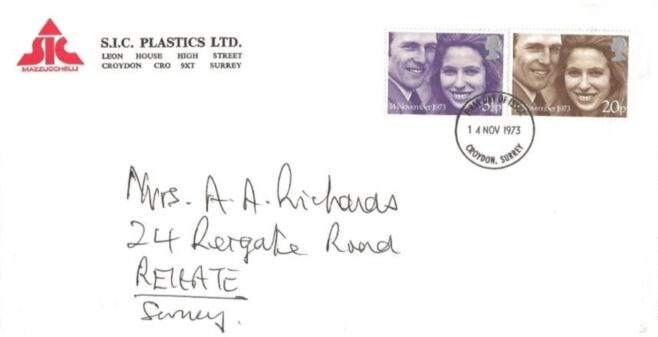 SIC
MAZZUCCHELLI
S.I.C. PLASTICS LTD.
LEON HOUSE HIGH STREET
CROYDON CRO 9XT SURREY
14 November 1973
3½p
November 1973
20p
FIRST DAY OF ISSUE
14 NOV 1973
CROYDON, SURREY
Mrs. A. A. Richards
24 Road
REIGATE
Surrey.